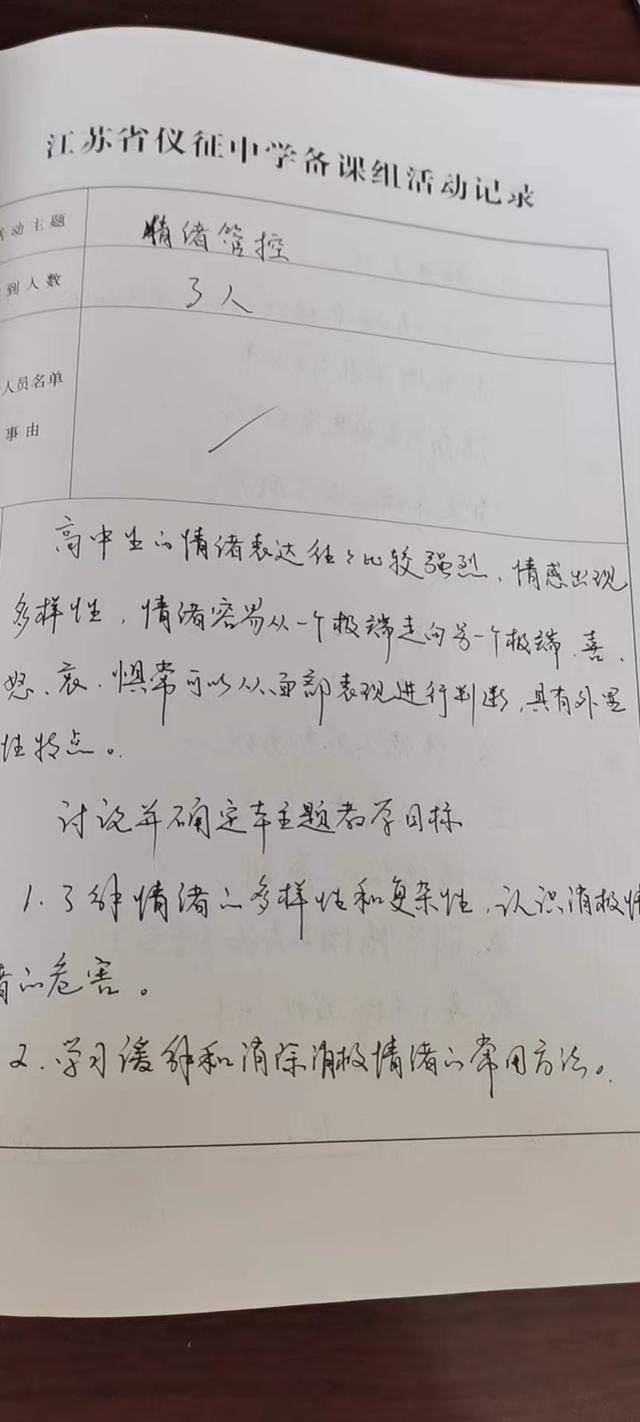 江苏省仪征中学备课组活动记录
动主题 情绪管控
到人数 3人
人员名单
事由
高中生的情绪表达往往比较强烈、情感出现
多样性，情绪容易从一个极端走向另一个极端、喜、
怒、哀、惧常可以从面部表现进行判断，具有外显
性特点。
讨论并确定本主题教学目标
1.了解情绪的多样性和复杂性，认识消极情
绪的危害。
2.学习缓解和消除消极情绪的常用方法。